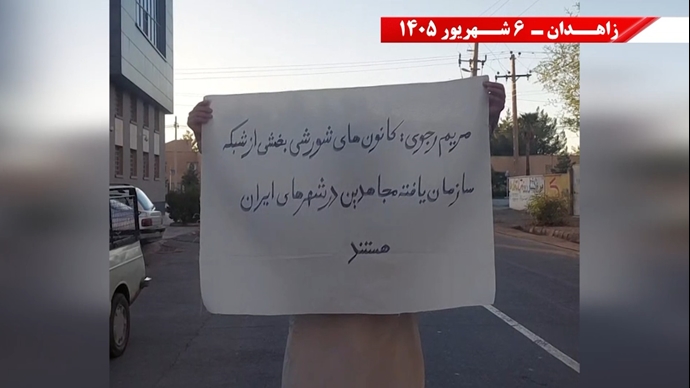 زاهدان – ۶ شهریور ۱۴۰۵
مریم رجوی: کانون های شورشی بخشی از شبکه
سازمان یافته مجاهدین در شهرهای ایران
هستند